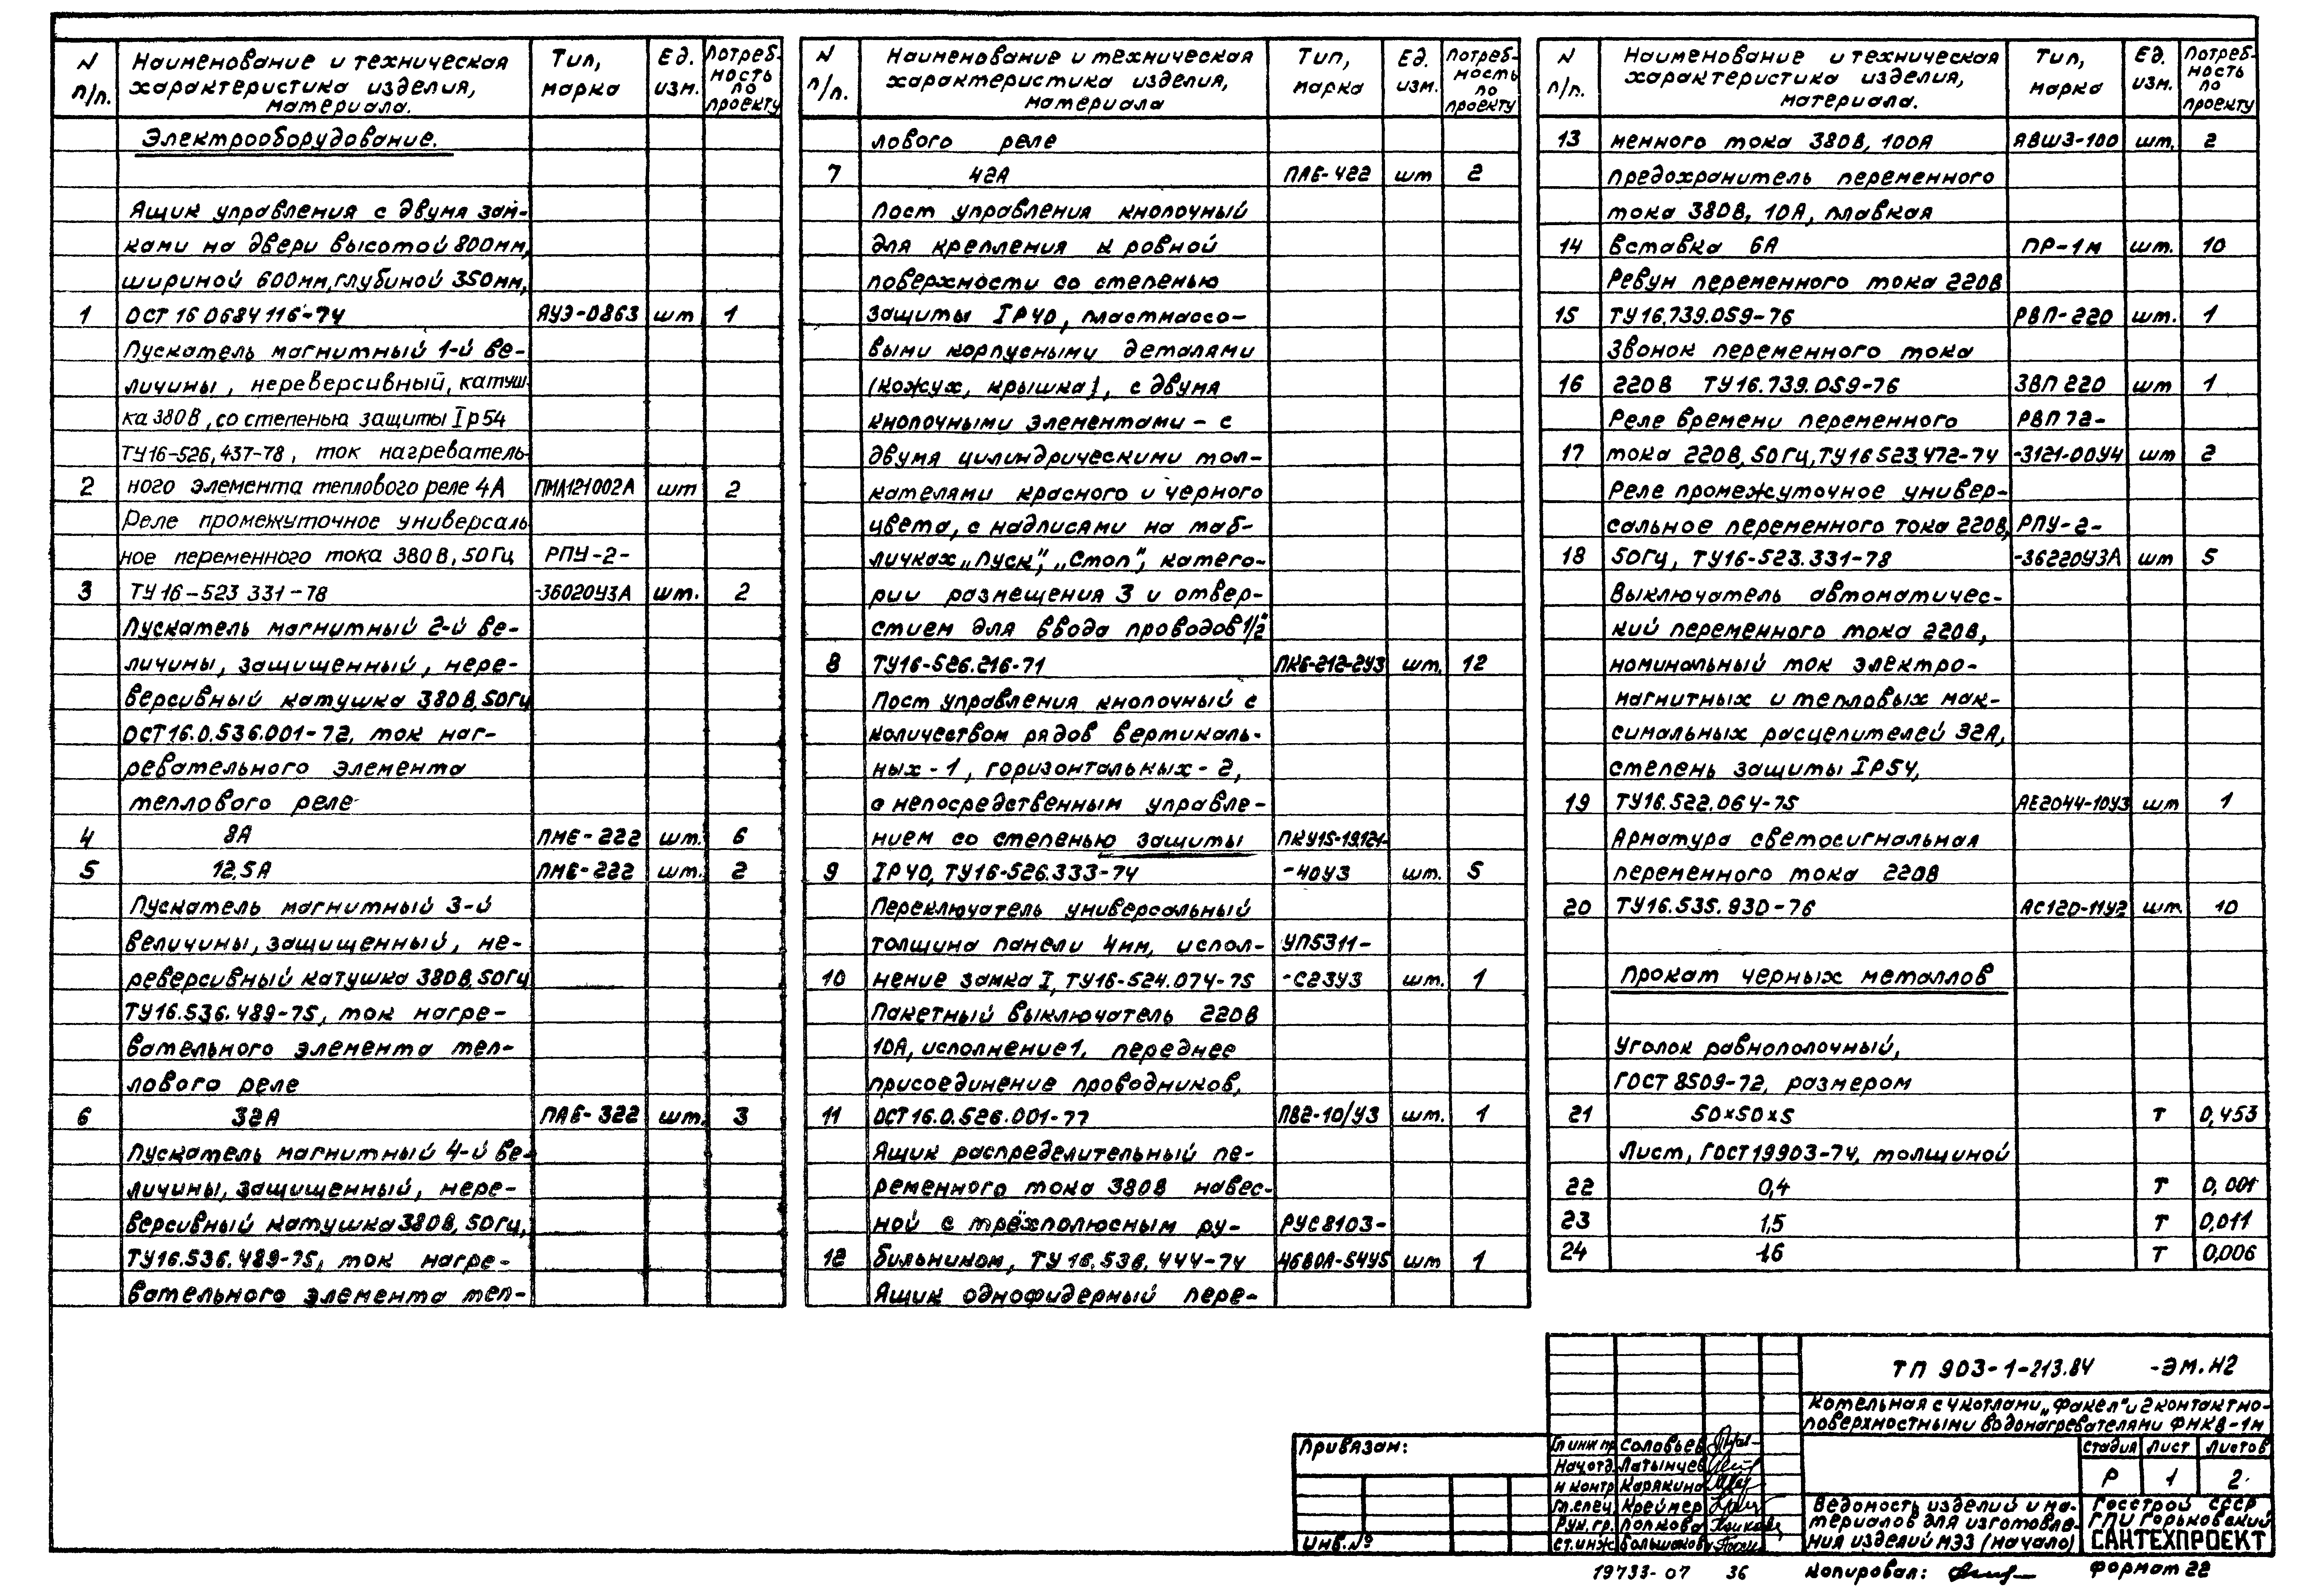 N п/п. Наименование и техническая характеристика изделия, материала. Тип, марка Ед. изм. Потребность по проекту
Электрооборудование.
Ящик управления с двумя зам-
ками на двери высотой 800мм,
шириной 600мм, глубиной 350мм,
1 ОСТ 16 0684 116-74 ЯУЭ-0863 шт 1
Пускатель магнитный 1-й ве-
личины, нереверсивный, катуш-
ка 380В, со степенью защиты Ip54
ТУ16-526,437-78, ток нагреватель-
2 ного элемента теплового реле 4А ПМЛ121002А шт 2
Реле промежуточное универсаль
ное переменного тока 380В, 50Гц РПУ-2-
3 ТУ16-523 331-78 -36020У3А шт. 2
Пускатель магнитный 2-й ве-
личины, защищенный, нере-
версивный катушка 380В, 50Гц
ОСТ16.0.536.001-72, ток наг-
ревательного элемента
теплового реле
4 8А ПМЕ-222 шт. 6
5 12,5А ПМЕ-222 шт. 2
Пускатель магнитный 3-й
величины, защищенный, не-
реверсивный катушка 380В, 50Гц
ТУ16.536.489-75, ток нагре-
вательного элемента теп-
лового реле
6 32А ПАЕ-322 шт. 3
Пускатель магнитный 4-й ве-
личины, защищенный, нере-
версивный катушка 380В, 50Гц,
ТУ16.536.489-75, ток нагре-
вательного элемента теп-
N п/п. Наименование и техническая характеристика изделия, материала Тип, марка Ед. изм. Потребность по проекту
лового реле
7 42А ПАЕ-422 шт 2
Пост управления кнопочный
для крепления к ровной
поверхности со степенью
защиты IP40, пластмассо-
выми корпусными деталями
(кожух, крышка), с двумя
кнопочными элементами - с
двумя цилиндрическими тол-
кателями красного и черного
цвета, с надписями на таб-
личках „Пуск", „Стоп", катего-
рии размещения 3 и отвер-
стием для ввода проводов 1/2"
8 ТУ16-526.216-71 ПКЕ-212-2У3 шт. 12
Пост управления кнопочный с
количеством рядов вертикаль-
ных - 1, горизонтальных - 2,
с непосредственным управле-
нием со степенью защиты ПКУ15-19.121-
9 IP40, ТУ16-526.333-74 -40У3 шт. 5
Переключатель универсальный
толщина панели 4мм, испол- УП5311-
10 нение замка I, ТУ16-524.074-75 -С23У3 шт. 1
Пакетный выключатель 220В
10А, исполнение 1, переднее
присоединение проводников,
11 ОСТ16.0.526.001-77 ПВ2-10/У3 шт. 1
Ящик распределительный пе-
ременного тока 380В навес-
ной с трёхполюсным ру- РУС8103-
12 бильником, ТУ 16.536.444-74 4680А-54У5 шт 1
Ящик однофидерный пере-
N п/п. Наименование и техническая характеристика изделия, материала. Тип, марка Ед. изм. Потребность по проекту
13 менного тока 380В, 100А ЯВШ3-100 шт. 2
Предохранитель переменного
тока 380В, 10А, плавкая
14 вставка 6А ПР-1м шт. 10
Ревун переменного тока 220В
15 ТУ16.739.059-76 РВП-220 шт. 1
Звонок переменного тока
16 220В ТУ16.739.059-76 ЗВП 220 шт 1
Реле времени переменного РВП72-
17 тока 220В, 50Гц, ТУ16 523.472-74 -3121-00У4 шт 2
Реле промежуточное универ-
сальное переменного тока 220В, РПУ-2-
18 50Гц, ТУ16-523.331-78 -36220У3А шт 5
Выключатель автоматичес-
кий переменного тока 220В,
номинальный ток электро-
магнитных и тепловых мак-
симальных расцепителей 32А,
степень защиты IP54,
19 ТУ16.522.064-75 АЕ2044-10У3 шт 1
Арматура светосигнальная
переменного тока 220В
20 ТУ16.535.930-76 АС120-11У2 шт. 10
Прокат черных металлов
Уголок равнополочный,
ГОСТ 8509-72, размером
21 50×50×5 т 0,453
Лист, ГОСТ19903-74, толщиной
22 0,4 т 0,001
23 1,5 т 0,011
24 16 т 0,006
ТП 903-1-213.84 -ЭМ.Н2
Котельная с 4 котлами „Факел" и 2 контактно-
поверхностными водонагревателями ФНКВ-1м
Привязан:
Инв.№
Гл инж пр Соловьев
Нач.отд. Латынцев
Н контр Карякина
Гл.спец. Креймер
Рук.гр. Попкова
Ст.инж. Большакова
Стадия Лист Листов
Р 1 2
Ведомость изделий и ма-
териалов для изготовле-
ния изделий МЭЗ (начало)
Госстрой СССР
ГПИ Горьковский
САНТЕХПРОЕКТ
19733-07 36 Копировал: Формат 22